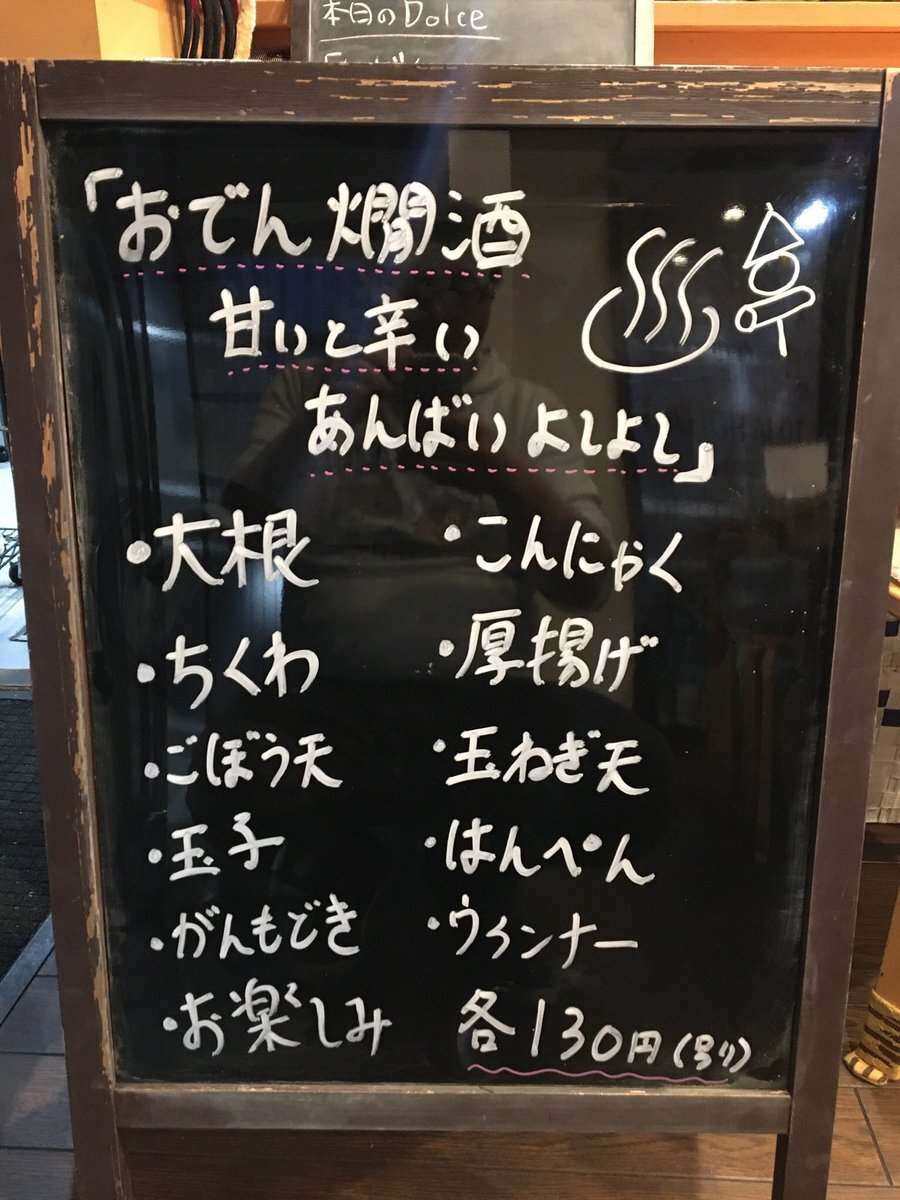 本日のDolce
「おでん 燗酒
甘いと辛い
あんばい よしよし」
・大根
・こんにゃく
・ちくわ
・厚揚げ
・ごぼう天
・玉ねぎ天
・玉子
・はんぺん
・がんもどき
・ウインナー
・お楽しみ
各130円